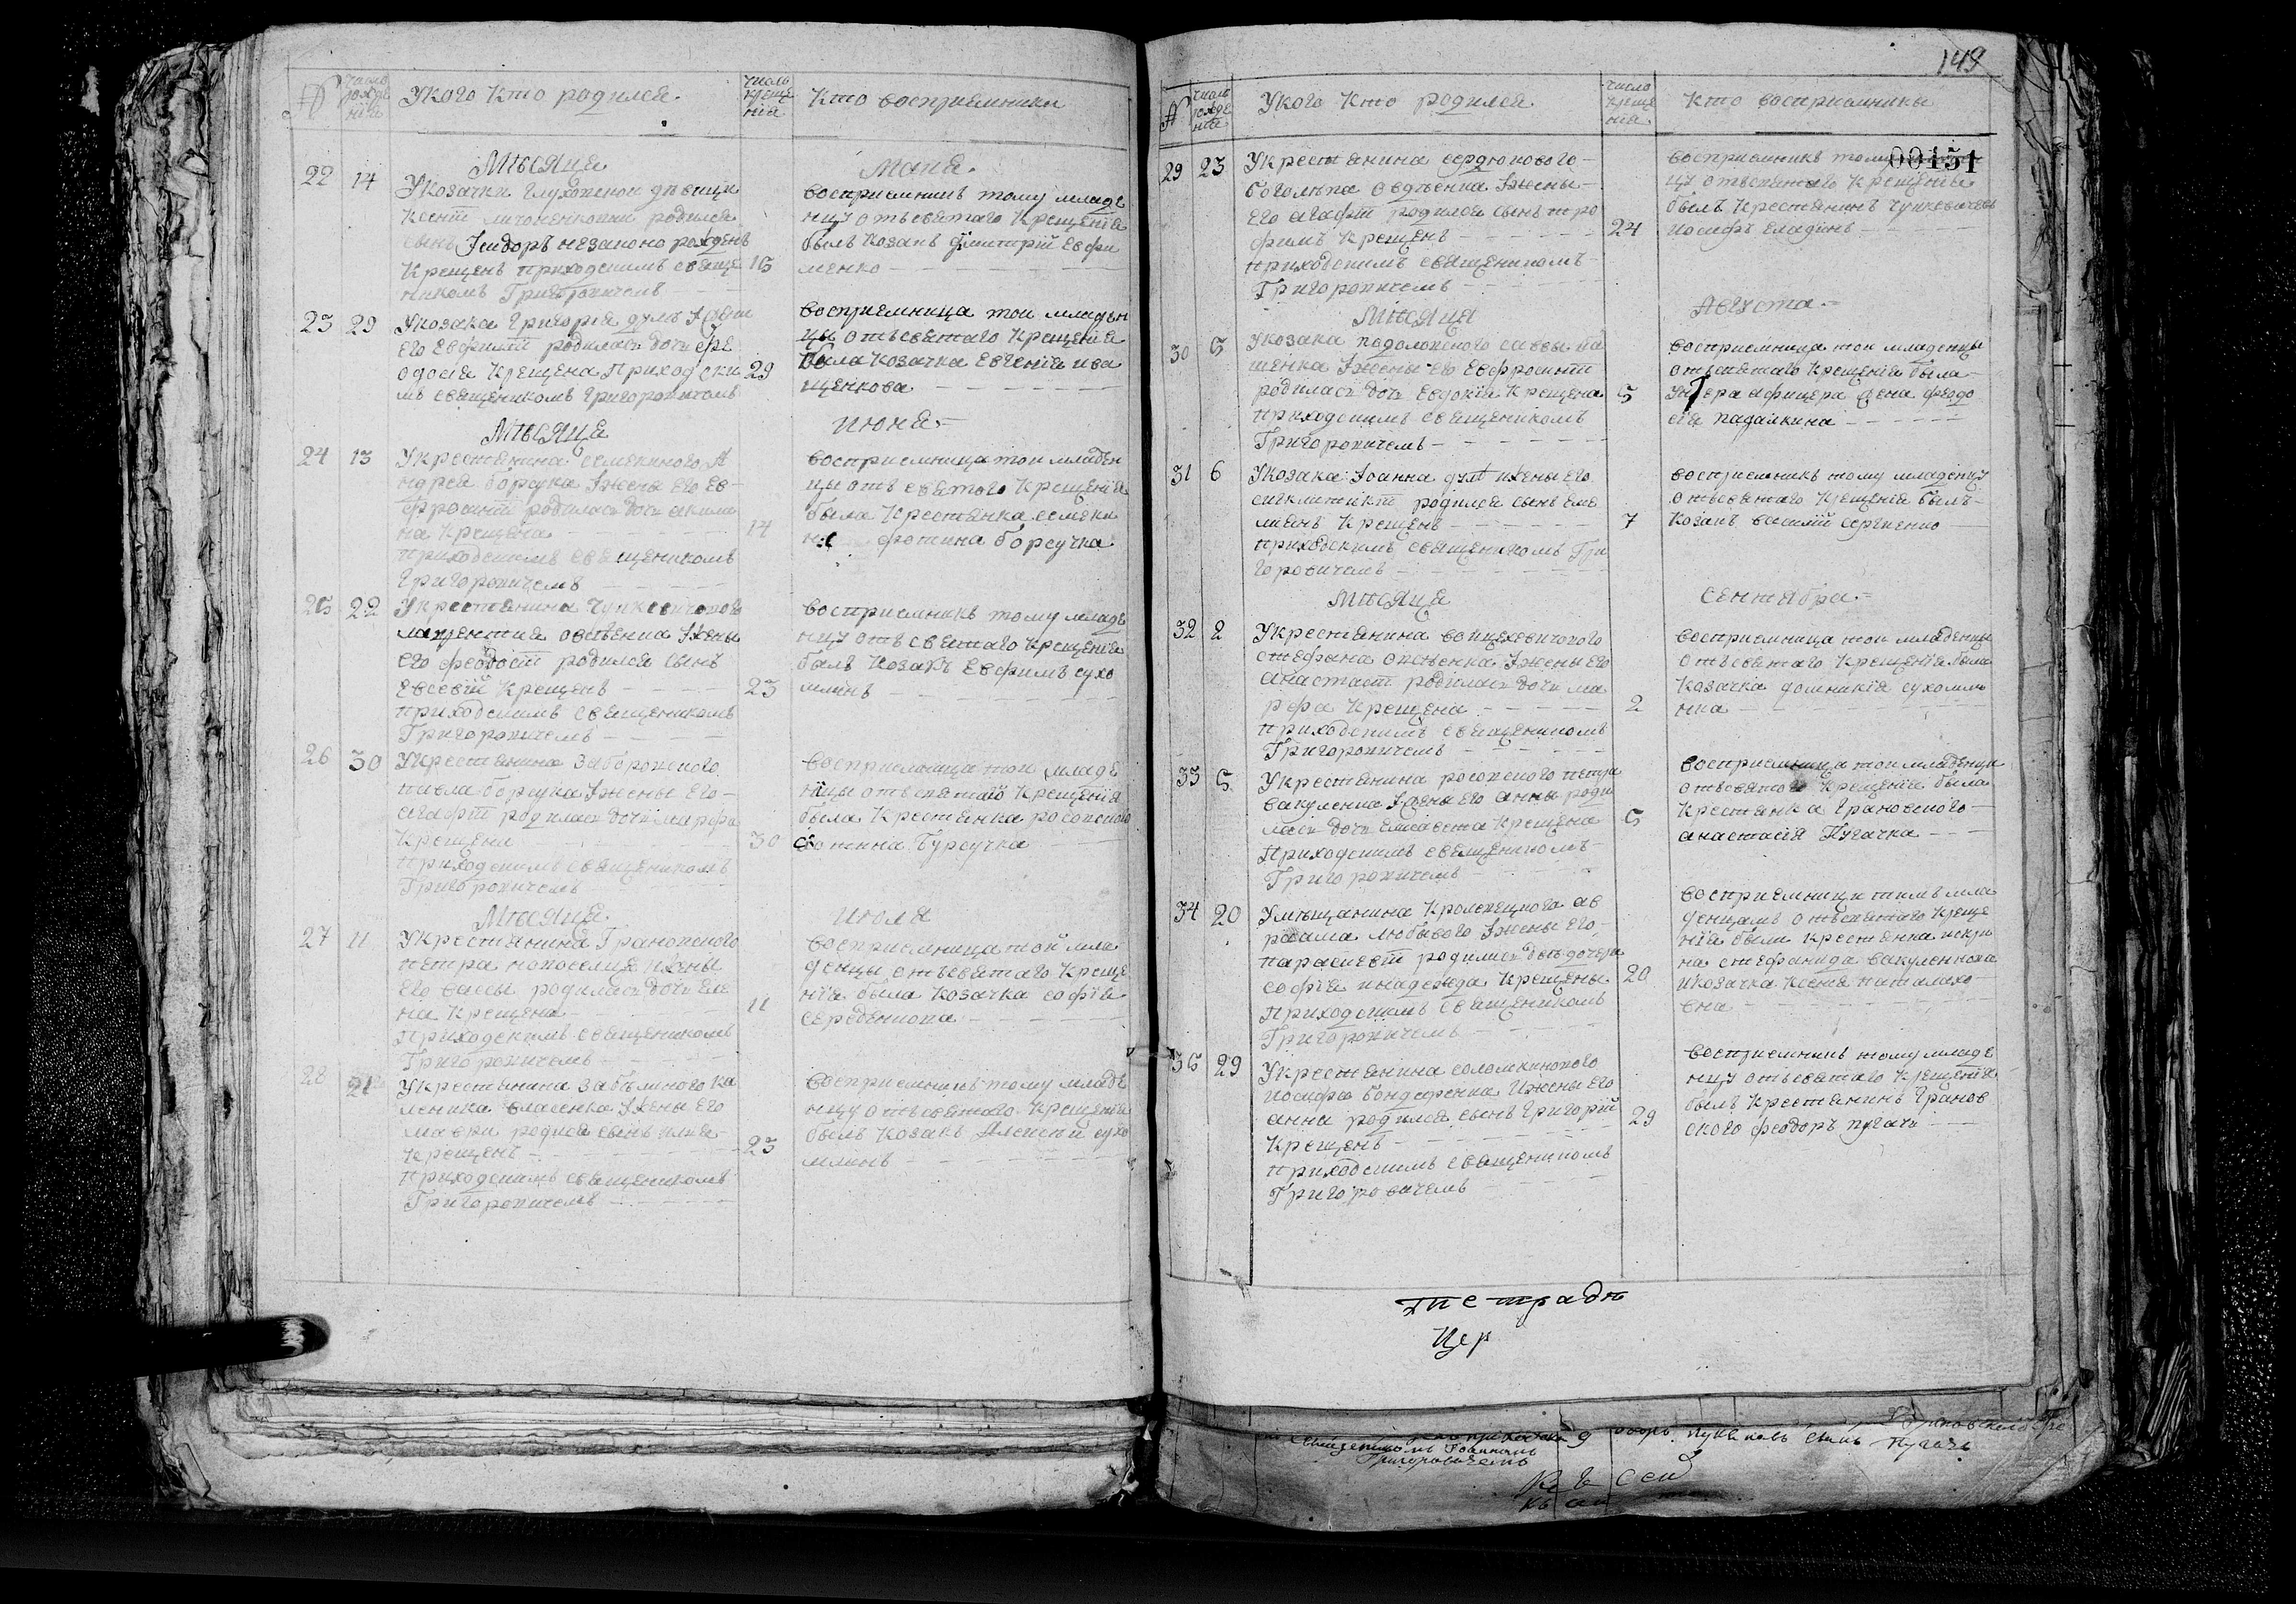 № число рожде нїя Укого Кто родился число креще нїя Кто восприемники
Мѣсяца Маїя
22 14 Укозачки
родился
сынъ Їсидоръ незаконо рожденъ
Крещенъ приходскимъ свяще 15
никомъ Григоровичемъ
восприемникъ тому младе
нцу отъ святаго Крещенїя
былъ Козакъ Димитрїй Евфи
менко
23 29 Укозака Григорїя
его Евфимїи родилась дочь Фе
одосїя Крещена Приходски 29
мъ священикомъ Григоровичемъ
восприемница тои младен
цы отъ святаго Крещенїя
была Козачка Евгенїя ива
щенкова
Мѣсяца Июня
24 13 Укрестянина семекиного А
ндрея борсука Їжены Его Ев
фросинїи родилась дочь акили
на Крещена 14
приходскимъ священикомъ
Григоровичемъ
восприемница тои младен
цы отъ святого Крещенїя
была Крестянка семеки
фотина борсучка
25 22 Укрестянина
лаврентия овсѣенка Їжены
Его феодосїи родился сынъ
Евсевїй Крещенъ 23
приходскимъ священикомъ
Григоровичемъ
восприемникъ тому младе
нцу отъ святаго Крещенїя
былъ Козакъ Евфимъ сухо
млинъ
26 30 Укрестянина Заборовского
павла борсука Їжены Его
агафїи родилась дочь марфа
Крещена 30
приходскимъ священикомъ
Григоровичемъ
восприемница тои младе
нцы отъ святаго Крещенїя
была Крестянка росовского
фотинна Бурсучка
Мѣсяца Июля
27 11 Укрестянина Грановского
петра новоселца Їжены
Его вассы родилась дочь Еле
на Крещена 11
Приходскимъ священикомъ
Григоровичемъ
восприемница той мла
денцы отъ святаго Креще
нїя была Козачка софїя
середенкова
28 21 Укрестянина Забѣлиного
власенка Їжены Его
маври родися сынъ илїя
Крещенъ 23
приходскимъ священикомъ
Григоровичемъ
восприемникъ тому младе
нцу отъ святого Крещенїя
былъ Козакъ Алексѣй сухо
млинъ
149
00151
№ число рожде нїя Укого Кто родился число креще нїя Кто восприемники
29 23 Укрестянина сердюкового
боголѣпа овдѣенка Їжены
Его агафїи родился сынъ тро
фимъ Крещенъ 24
приходскимъ священикомъ
Григоровичемъ
восприемникъ тому
нцу отъ святаго Крещенїя
былъ Крестянинъ
иосифъ
Мѣсяца Августа
30 5 Укозака подоловского саввы
Їжены Его Евфросинїи
родилась дочь Евдокїя Крещена 5
приходскимъ священикомъ
Григоровичемъ
восприемница тои младенцы
отъ святаго Крещенїя была
Унтера афицера жена феодо
сїя падалкина
31 6 Укозака Їоанна Їжены Его
синклитикїи родился сынъ Еме
лиянъ Крещенъ 7
приходскимъ священикомъ Гри
горовичемъ
восприемникъ тому младенцу
отъ святаго Крещенїя былъ
Козакъ василїй сергїенко
Мѣсяца Сентября
32 2 Укрестянина войцеховичового
стефана Їжены Его
анастасїи родилась дочь ма
рфа Крещена 2
приходскимъ священикомъ
Григоровичемъ
восприемница тои младенцы
отъ святаго Крещенїя была
Козачка домникїя сухомли
нка
33 5 Укрестянина росовского петра
вакуленка Їжены Его анны роди
лась дочь Елисавета Крещена 5
Приходскимъ священикомъ
Григоровичемъ
восприемница тои младенцы
отъ святого Крещенїя была
Крестянка Грановского
анастасїя Пугачка
34 20 Умѣщанина Кролевецкого ав
раама любивого Їжены Его
параскевїи родились двѣ дочери
софїя инадежда Крещены 20
приходскимъ священикомъ
Григоровичемъ
восприемницы тимъ мла
денцамъ отъ святаго Креще
нїя были Крестянка
на стефанида вакуленкова
икозачка Ксенїя
вна
35 29 Укрестянина соломкинового
иосифа бондаренка Їжены Его
анны родился сынъ Григорїй
Крещенъ 29
приходскимъ священикомъ
Григоровичемъ
восприемникъ тому младе
нцу отъ святаго Крещенїя
былъ Крестянинъ Гранов
ского феодоръ пугачь
тетрадь
Цер
священикомъ Їоанномъ
Григоровичемъ
сынъ Пугачь